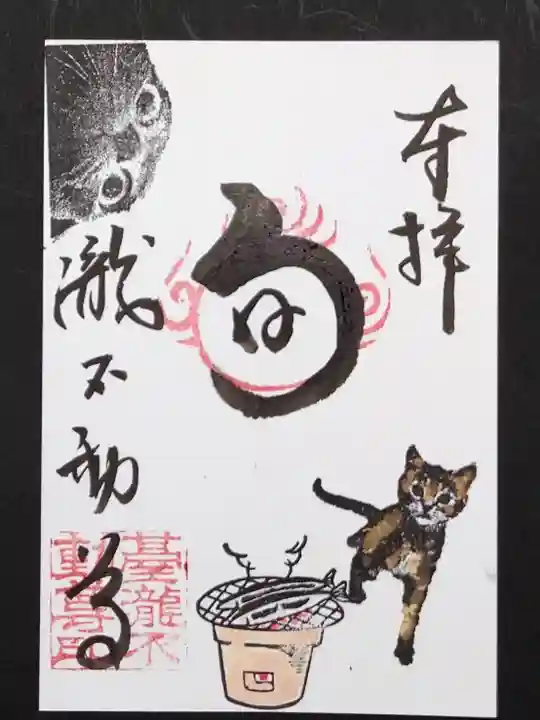 奉拝
旬
瀧不動尊
瀧不
動尊印